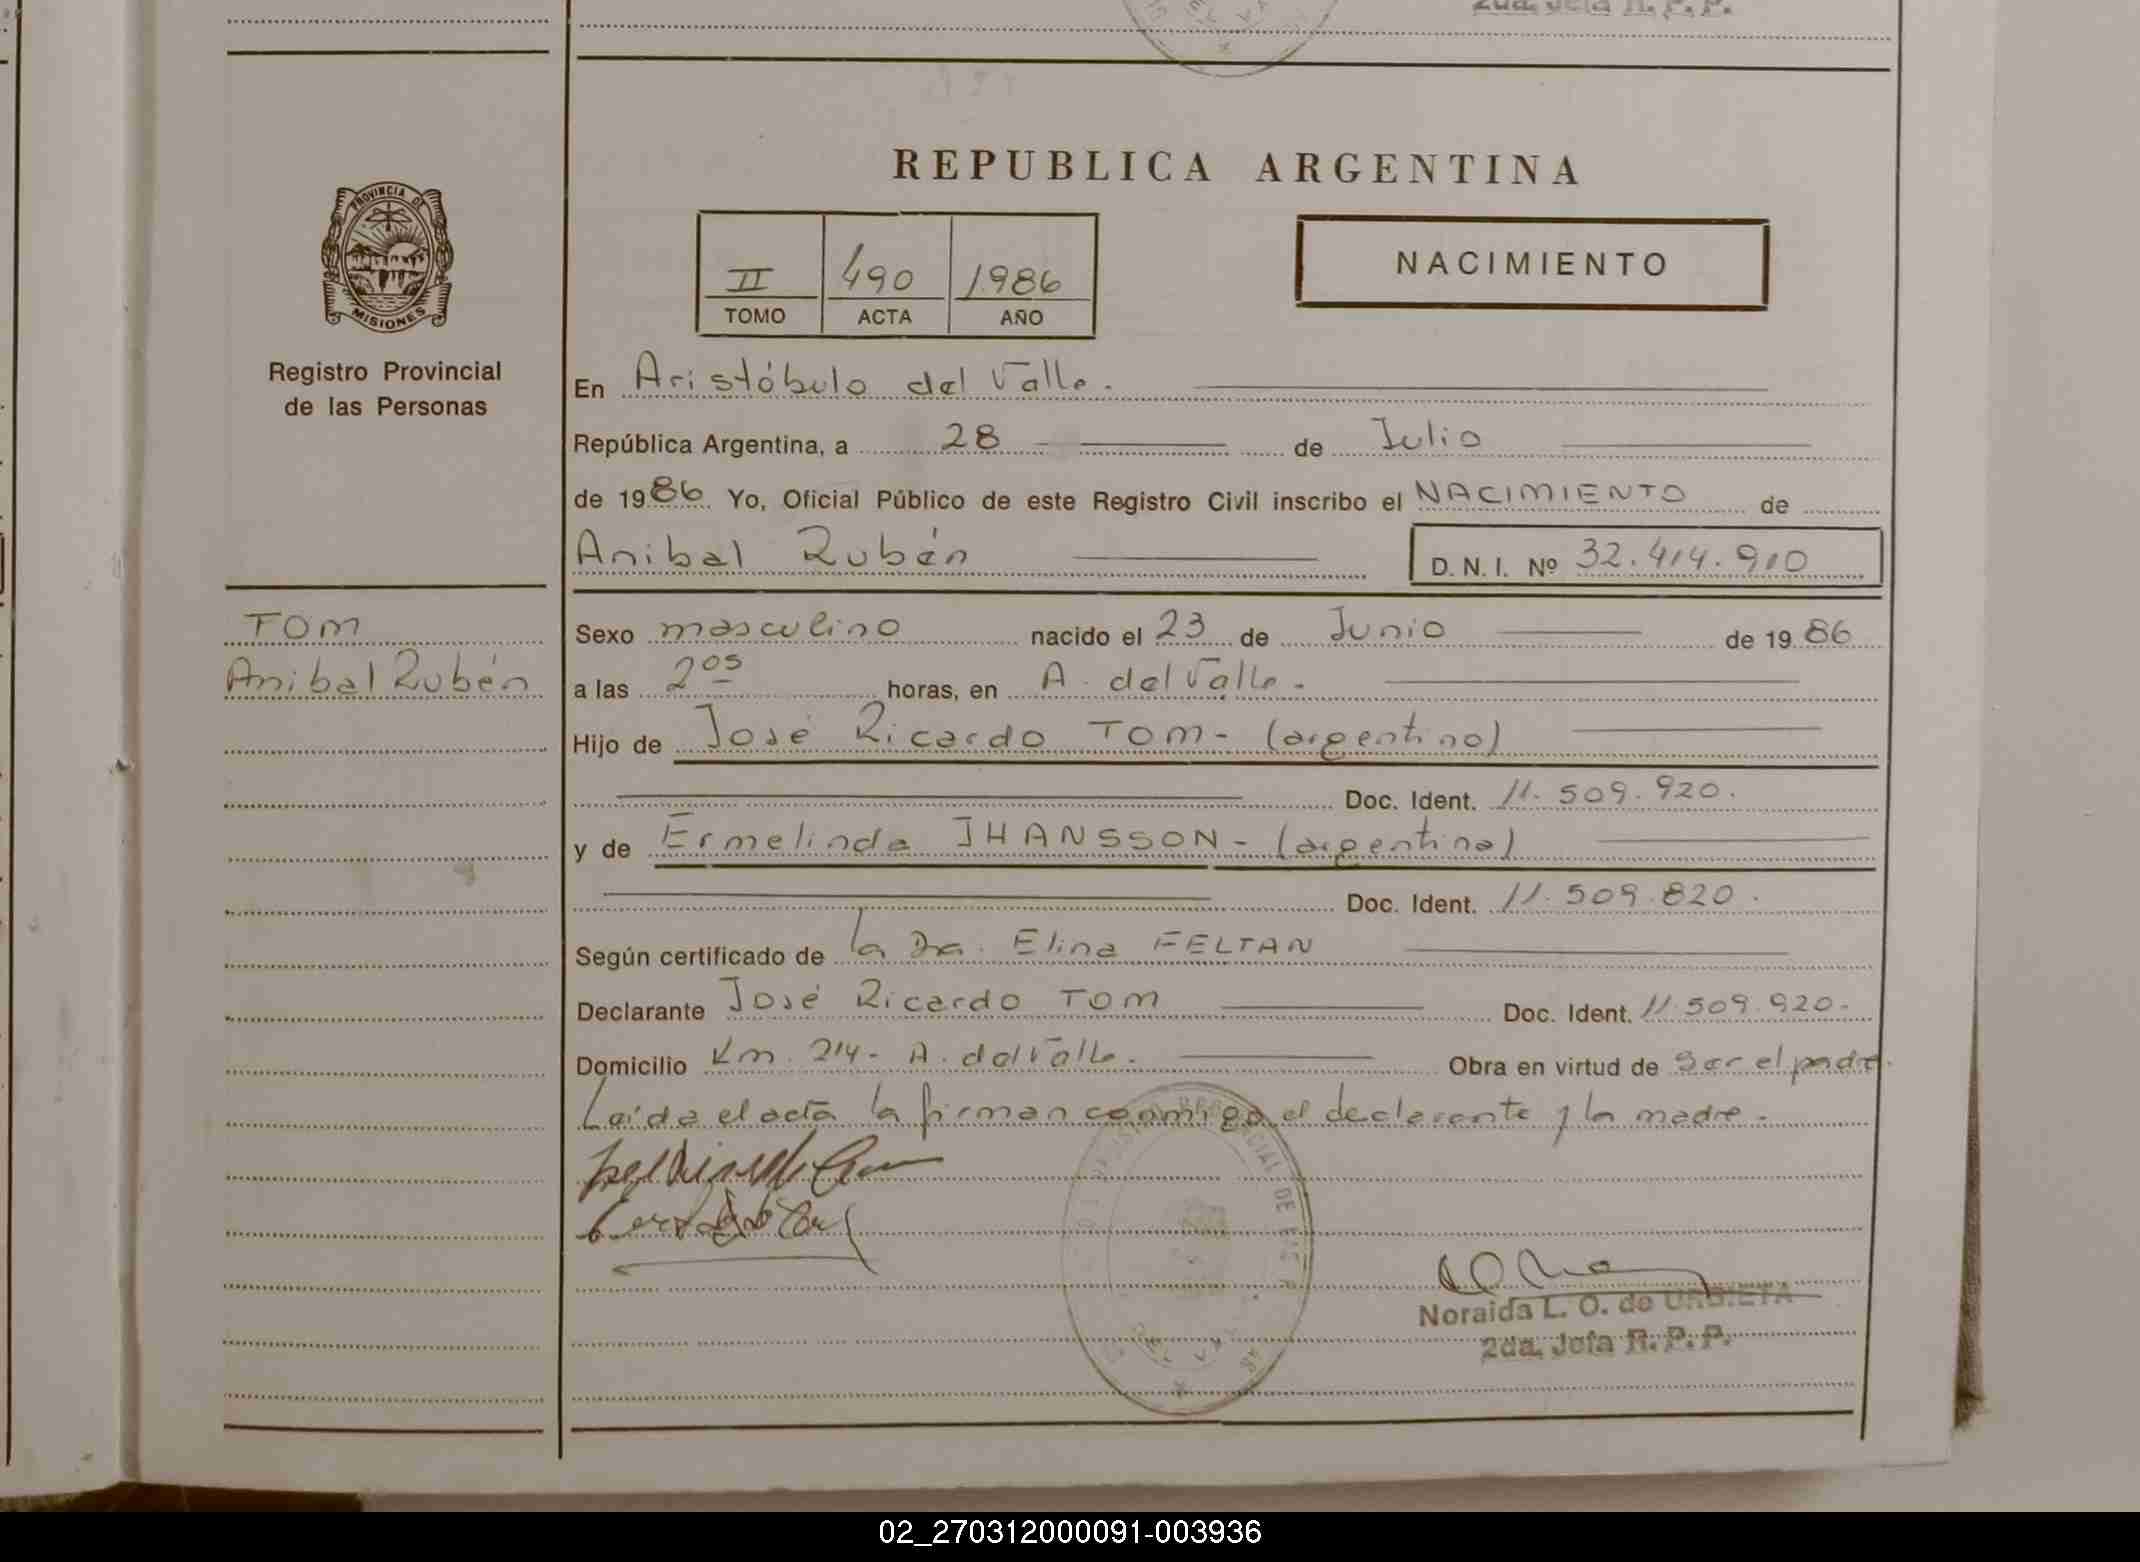 2da. Jefa R. P. P.
REPUBLICA ARGENTINA
PROVINCIA DE
MISIONES
Registro Provincial
de las Personas
II 490 1986
TOMO ACTA AÑO
NACIMIENTO
En Aristóbulo del Valle.
República Argentina, a 28 de Julio
de 1986. Yo, Oficial Público de este Registro Civil inscribo el NACIMIENTO de
Anibal Rubén D. N. I. Nº 32.414.910
TOM
Anibal Rubén
Sexo masculino nacido el 23 de Junio de 1986
a las 2 05 horas, en A. del Valle.-
Hijo de José Ricardo TOM- (argentino)
Doc. Ident. 11.509.920.
y de Ermelinda JHANSSON- (argentina)
Doc. Ident. 11.509.820.
Según certificado de la Dra. Elina FELTAN
Declarante José Ricardo TOM Doc. Ident. 11.509.920-
Domicilio Km. 214- A. del Valle. Obra en virtud de Ser el padre.
Leída el acta la firman conmigo el declarante y la madre.-
REGISTRO PROVINCIAL DE LAS
Noraida L. O. de URBIETA
2da. Jefa R. P. P.
02_270312000091-003936